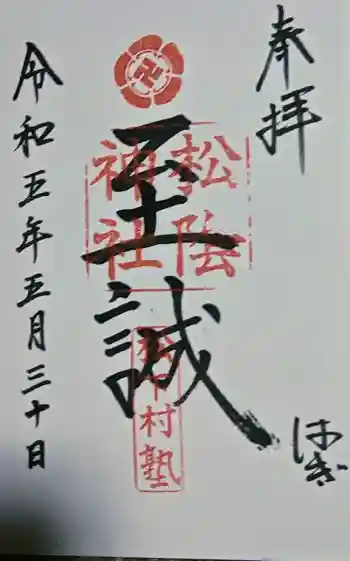 奉拝
はぎ
至誠
松陰
神社
松下村塾
令和五年五月三十日